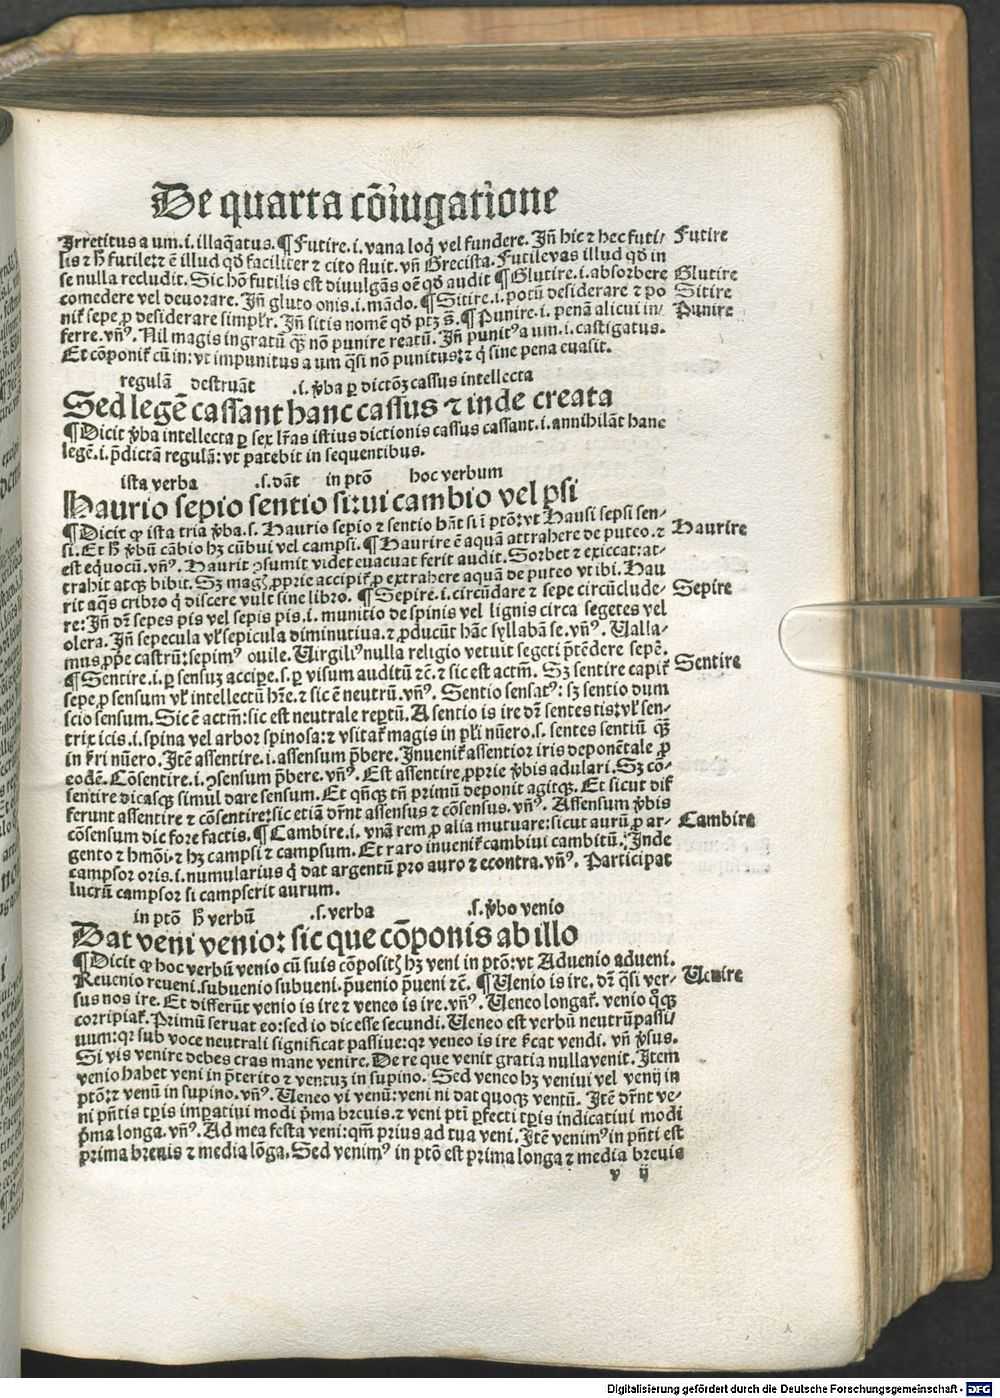 De quarta cōiugatione
Irretitus a um. i. illaq̄atus. ¶ Futire. i. vana loq̄ vel fundere. Iñ hic ⁊ hec futi⸗ Futire
lis ⁊ h̄ futile: ⁊ ē illud qđ faciliter ⁊ cito fluit. vñ Grecista. Futile vas illud qđ in
se nulla recludit. Sic hō futilis est diuulgās oē qđ audit ¶ Glutire. i. absorbere Glutire
comedere vel deuorare. Iñ gluto onis. i. mādo. ¶ Sitire. i. potū desiderare ⁊ po Sitire
nit̄ sepe ꝓ desiderare simplr̄. Iñ sitis nomē qđ ptꝫ s̄. ¶ Punire. i. penā alicui in⸗ Punire
ferre. vñꝰ. Nil magis ingratū qꝫ nō punire reatū. Iñ punitꝰ a um. i. castigatus.
Et cōponit̄ cū in: vt impunitus a um q̄si nō punitus: ⁊ q̇ sine pena euasit.
regulā destruāt .i. v̄ba ꝑ dictōꝫ cassus intellecta
Sed legē cassant hanc cassus ⁊ inde creata
¶ Dicit v̄ba intellecta ꝑ sex lr̄as istius dictionis cassus cassant. i. annihilāt hanc
legē. i. p̄dictā regulā: vt patebit in sequentibus.
ista verba .s. dāt in p̄tō hoc verbum
Haurio sepio sentio si: ui cambio vel psi
¶ Dicit ꝙ ista tria v̄ba. s. Haurio sepio ⁊ sentio hn̄t si ī p̄tō: vt Hausi sepsi sen⸗
si. Et h̄ v̄bū cābio hꝫ cūbui vel campsi. ¶ Haurire ē aquā attrahere de puteo. ⁊ Haurire
est equocū. vñꝰ. Haurit ꝯsumit videt euacuat ferit audit. Sorbet ⁊ exiccat: at⸗
trahit atqꝫ bibit. Sꝫ magꝭ ꝓprie accipit̄ ꝓ extrahere aquā de puteo vt ibi. Hau
rit aq̄s cribro q̇ discere vult sine libro. ¶ Sepire. i. circūdare ⁊ sepe circūclude⸗ Sepire
re: Iñ dr̄ sepes pis vel sepis pis. i. munitio de spinis vel lignis circa segetes vel
olera. Iñ sepecula vl̄ sepicula diminutiua. ⁊ ꝓducūt hāc syllabā se. vñꝰ. Ualla⸗
mus ꝓp̄e castrū: sepimꝰ ouile. Uirgiliꝰ nulla religio vetuit segeti p̄tēdere sepē.
¶ Sentire. i. ꝑ sensuꝫ accipe. s. ꝑ visum auditū ⁊c̄. ⁊ sic est actm̄. Sꝫ sentire capit̄ Sentire
sepe ꝓ sensum vl̄ intellectū hr̄e. ⁊ sic ē neutrū. vñꝰ. Sentio sensatꝰ: sꝫ sentio dum
scio sensum. Sic ē actm̄: sic est neutrale reꝑtū. A sentio is ire dr̄ sentes tis: vl̄ sen⸗
trix icis. i. spina vel arbor spinosa: ⁊ vsitat̄ magis in pl̄i nūero. s. sentes sentiū qꝫ
in s̄ri nūero. Itē assentire. i. assensum p̄bere. Inuenit̄ assentior iris deponētale ꝓ
eodē. Cōsentire. i. ꝯsensum p̄bere. vñꝰ. Est assentire ꝓprie v̄bis adulari. Sꝫ cō⸗
sentire dicasqꝫ simul dare sensum. Et qn̄qꝫ tn̄ primū deponit agitqꝫ. Et sicut dif
ferunt assentire ⁊ cōsentire: sic etiā dr̄nt assensus ⁊ cōsensus. vñꝰ. Assensum v̄bis
cōsensum dic fore factis. ¶ Cambire. i. vnā rem ꝓ alia mutuare: sicut aurū ꝓ ar⸗ Cambire
gento ⁊ hmōi. ⁊ hꝫ campsi ⁊ campsum. Et raro inuenit̄ cambiui cambitū. Inde
campsor oris. i. numularius q̇ dat argentū pro auro ⁊ econtra. vñꝰ. Participat
lucrū campsor si campserit aurum.
in p̄tō h̄ verbū .s. verba .s. v̄bo venio
Dat veni venio: sic que cōponis ab illo
¶ Dicit ꝙ hoc verbū venio cū suis cōpositꝭ hꝫ veni in p̄tō: vt Aduenio adueni.
Reuenio reueni. subuenio subueni. p̄uenio p̄ueni ⁊c̄. ¶ Uenio is ire. dr̄ q̄si ver⸗ Uenire
sus nos ire. Et differūt venio is ire ⁊ veneo is ire. vñꝰ. Ueneo longat̄. venio qꝫqꝫ
corripiat̄. Primū seruat eo: sed io dic esse secundi. Ueneo est verbū neutrū passi⸗
uum: qꝛ sub voce neutrali significat passiue: qꝛ veneo is ire s̄cat vendi. vñ v̄sus.
Si vis venire debes cras mane venire. De re que venit gratia nulla venit. Item
venio habet veni in p̄terito ⁊ ventuꝫ in supino. Sed veneo hꝫ veniui vel venij in
p̄tō: ⁊ venū in supino. vñꝰ. Ueneo vi venū: veni ni dat quoqꝫ ventū. Itē dr̄nt ve⸗
ni p̄ntis tp̄is impatiui modi p̄ma breuis. ⁊ veni p̄tī ꝑfecti tp̄is indicatiui modi
p̄ma longa. vñꝰ. Ad mea festa veni: qm̄ prius ad tua veni. Itē venimꝰ in p̄nti est
prima breuis ⁊ media lōga. Sed venimꝰ in p̄tō est prima longa ⁊ media breuis
v ij
Digitalisierung gefördert durch die Deutsche Forschungsgemeinschaft - DFG